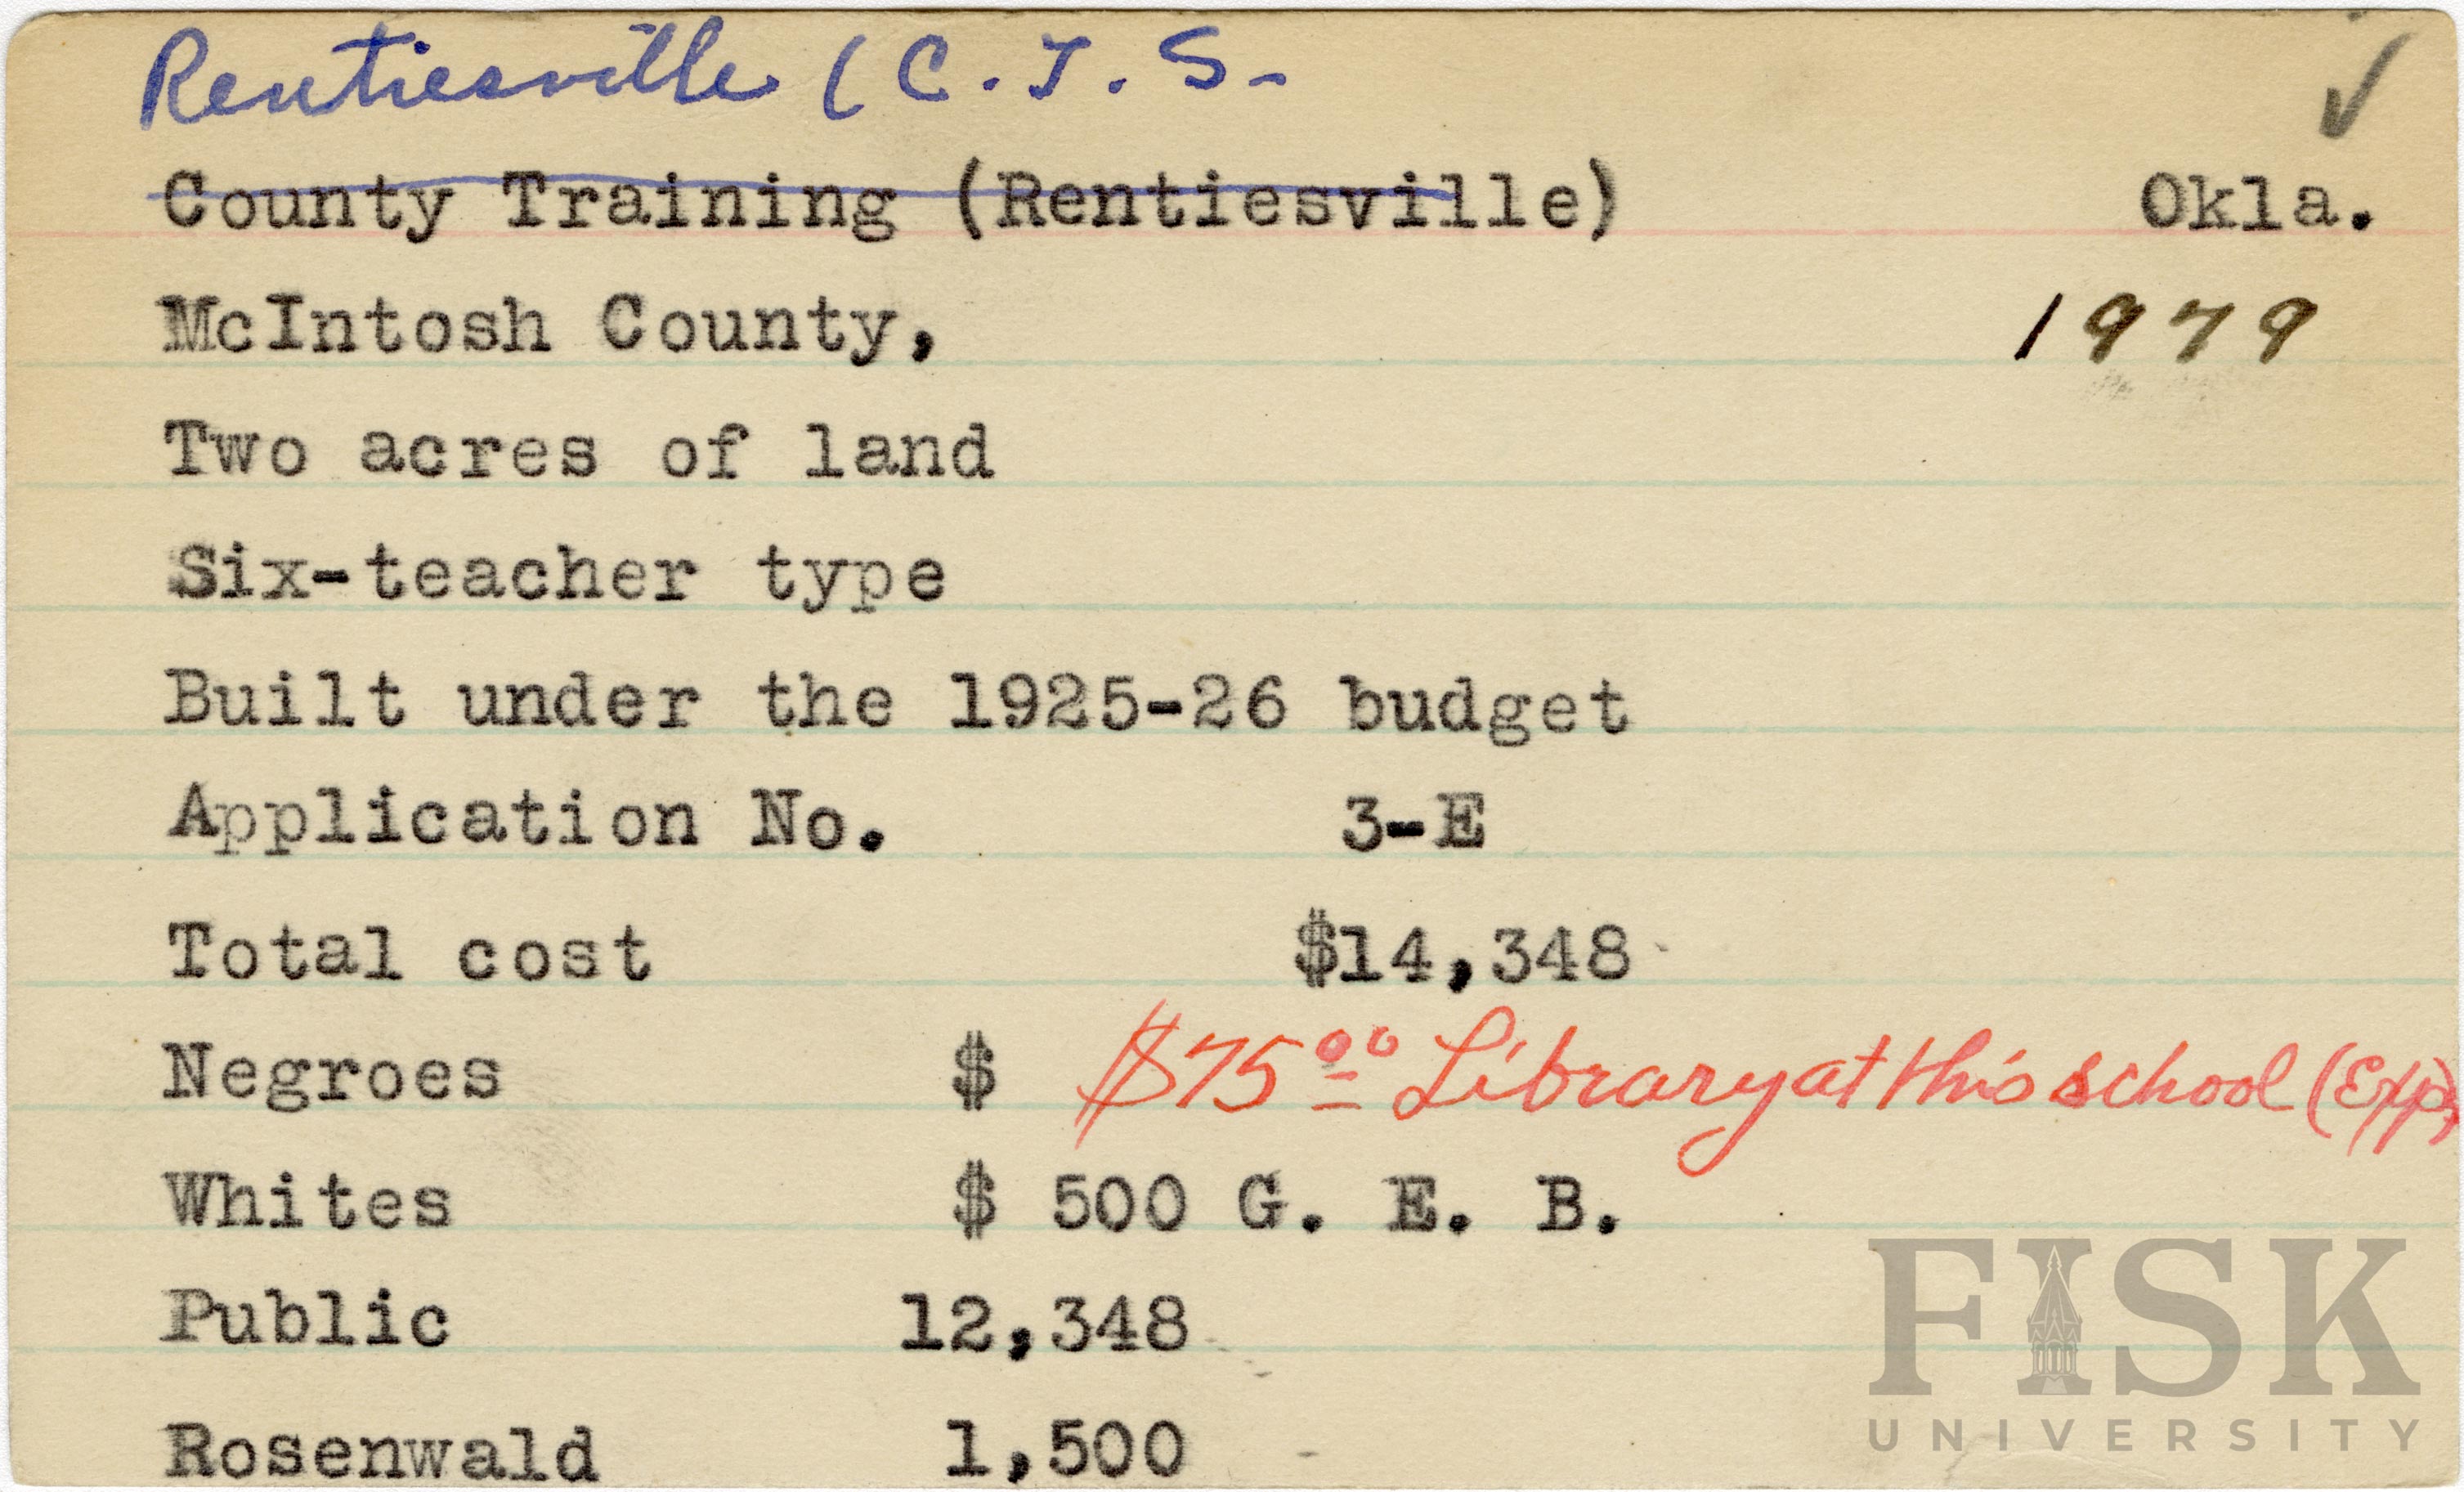 Rentiesville (C.T.S.
County Training (Rentiesville) Okla.
McIntosh County, 1979
Two acres of land
Six-teacher type
Built under the 1925-26 budget
Application No. 3-E
Total cost $14,348
Negroes $ $75.00 Library at this school (Exp.
Whites $ 500 G. E. B.
Public 12,348
Rosenwald 1,500
FISK
UNIVERSITY